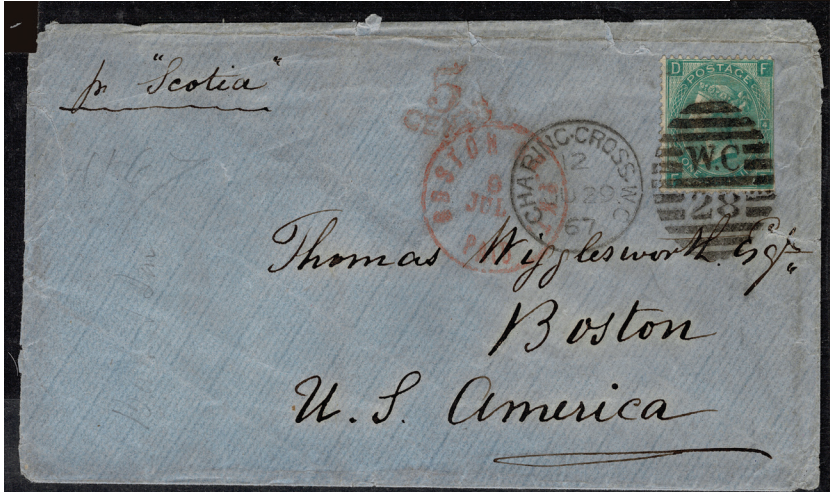 pr "Scotia"
D POSTAGE F
5
CENTS
CHARING·CROSS·W.C
12
29
67
W.C
28
BOSTON
JUL
PAID
Thomas Wigglesworth. Esqr
Boston
U. S. America